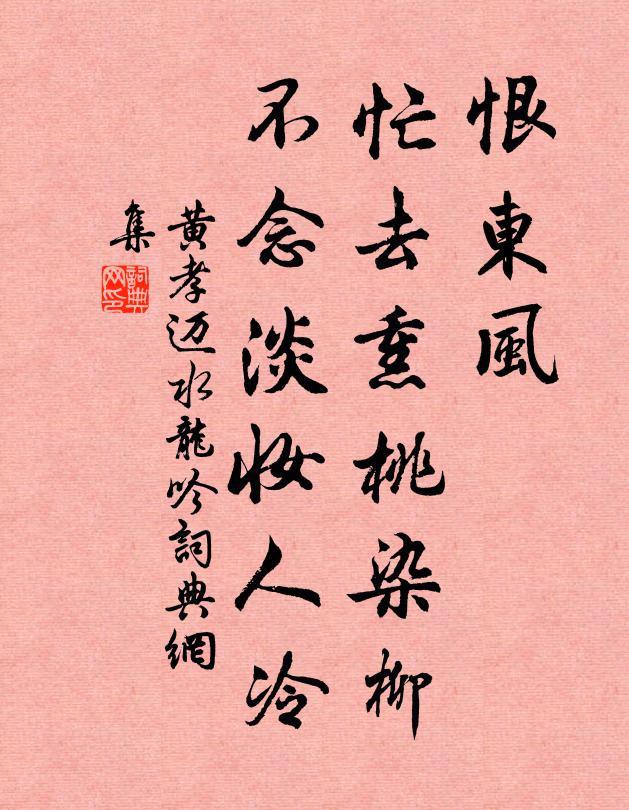 恨東風
忙去熏桃染柳
不念淡妝人冷
黃孝迈水龍吟詞典網
集
詞典
网印